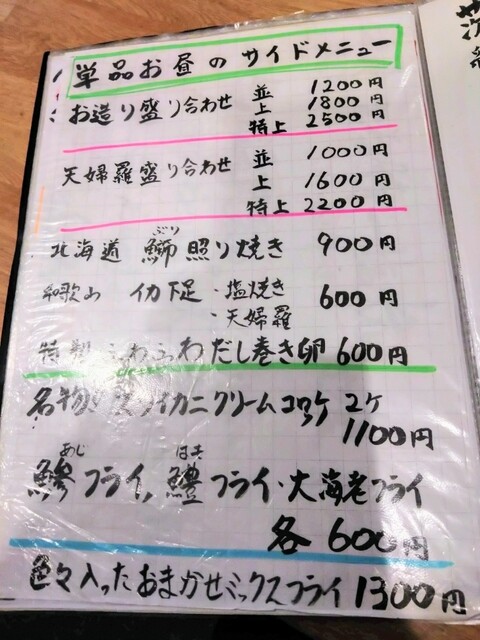 単品お昼のサイドメニュー
お造り盛り合わせ 並 1200円
上 1800円
特上 2500円
天婦羅盛り合わせ 並 1000円
上 1600円
特上 2200円
ぶり
北海道 鰤照り焼き 900円
和歌山 イカ下足・塩焼き 600円
・天婦羅
特製ふわふわだし巻き卵 600円
名物 ズワイカニクリームコロッケ 2ケ
1100円
あじ はも
鯵フライ, 鱧フライ・大海老フライ
各 600円
色々入ったおまかせミックスフライ 1300円